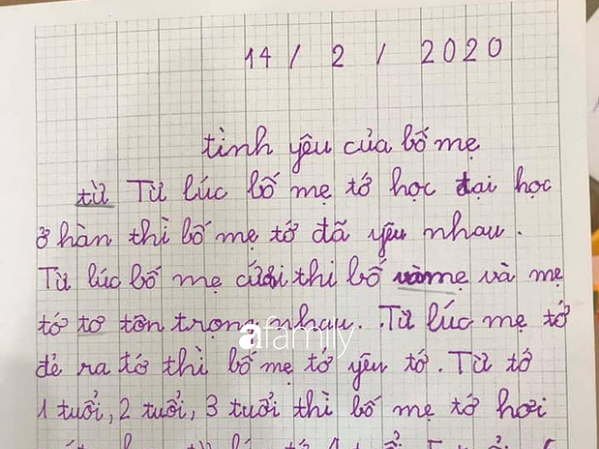 14 / 2 / 2020
tình yêu của bố mẹ
từ Từ lúc bố mẹ tớ học đại học
ở hàn thì bố mẹ tớ đã yêu nhau.
Từ lúc bố mẹ cưới thì bố vàmẹ và mẹ
tớ tơ tôn trọng nhau. Từ lúc mẹ tớ
afamily
đẻ ra tớ thì bố mẹ tớ yêu tớ. Từ tớ
1 tuổi, 2 tuổi, 3 tuổi thì bố mẹ tớ hơi